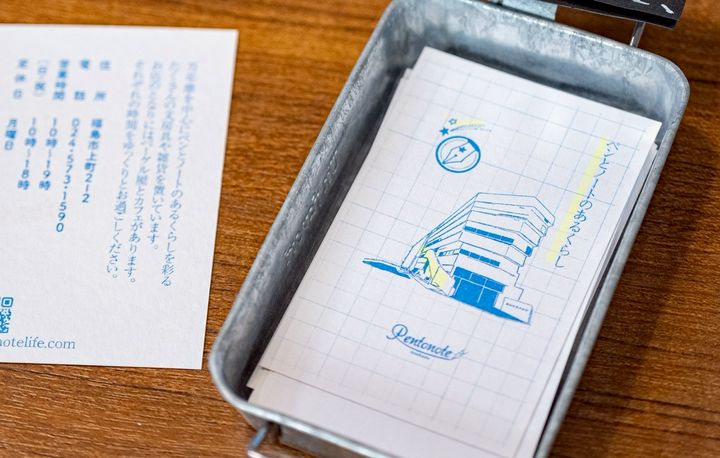 万年筆を中心にペンとノートのあるくらしを彩る
たくさんの文房具や雑貨を置いています。
お店のとなりにはベーグル屋とカフェがあります。
それぞれの時間をゆっくりとお過ごしください。
住所 福島市上町2-12
電話 024-573-1590
営業時間 10時〜19時
(日・祝) 10時〜18時
定休日 月曜日
notelife.com
ペンとノートのあるくらし
Pentonote